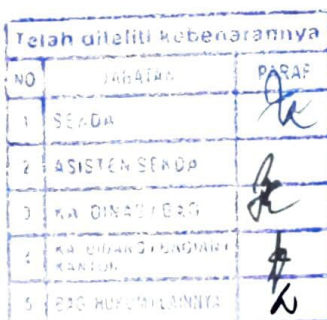 Telah diteliti kebenarannya
NO JABATAN PARAF
1 SEKDA
2 ASISTEN SEKDA
3 KA. DINAS / BAG
4 KA. BIDANG / BAGIAN /
KANTOR
5 BAG HUKUM / LAINNYA